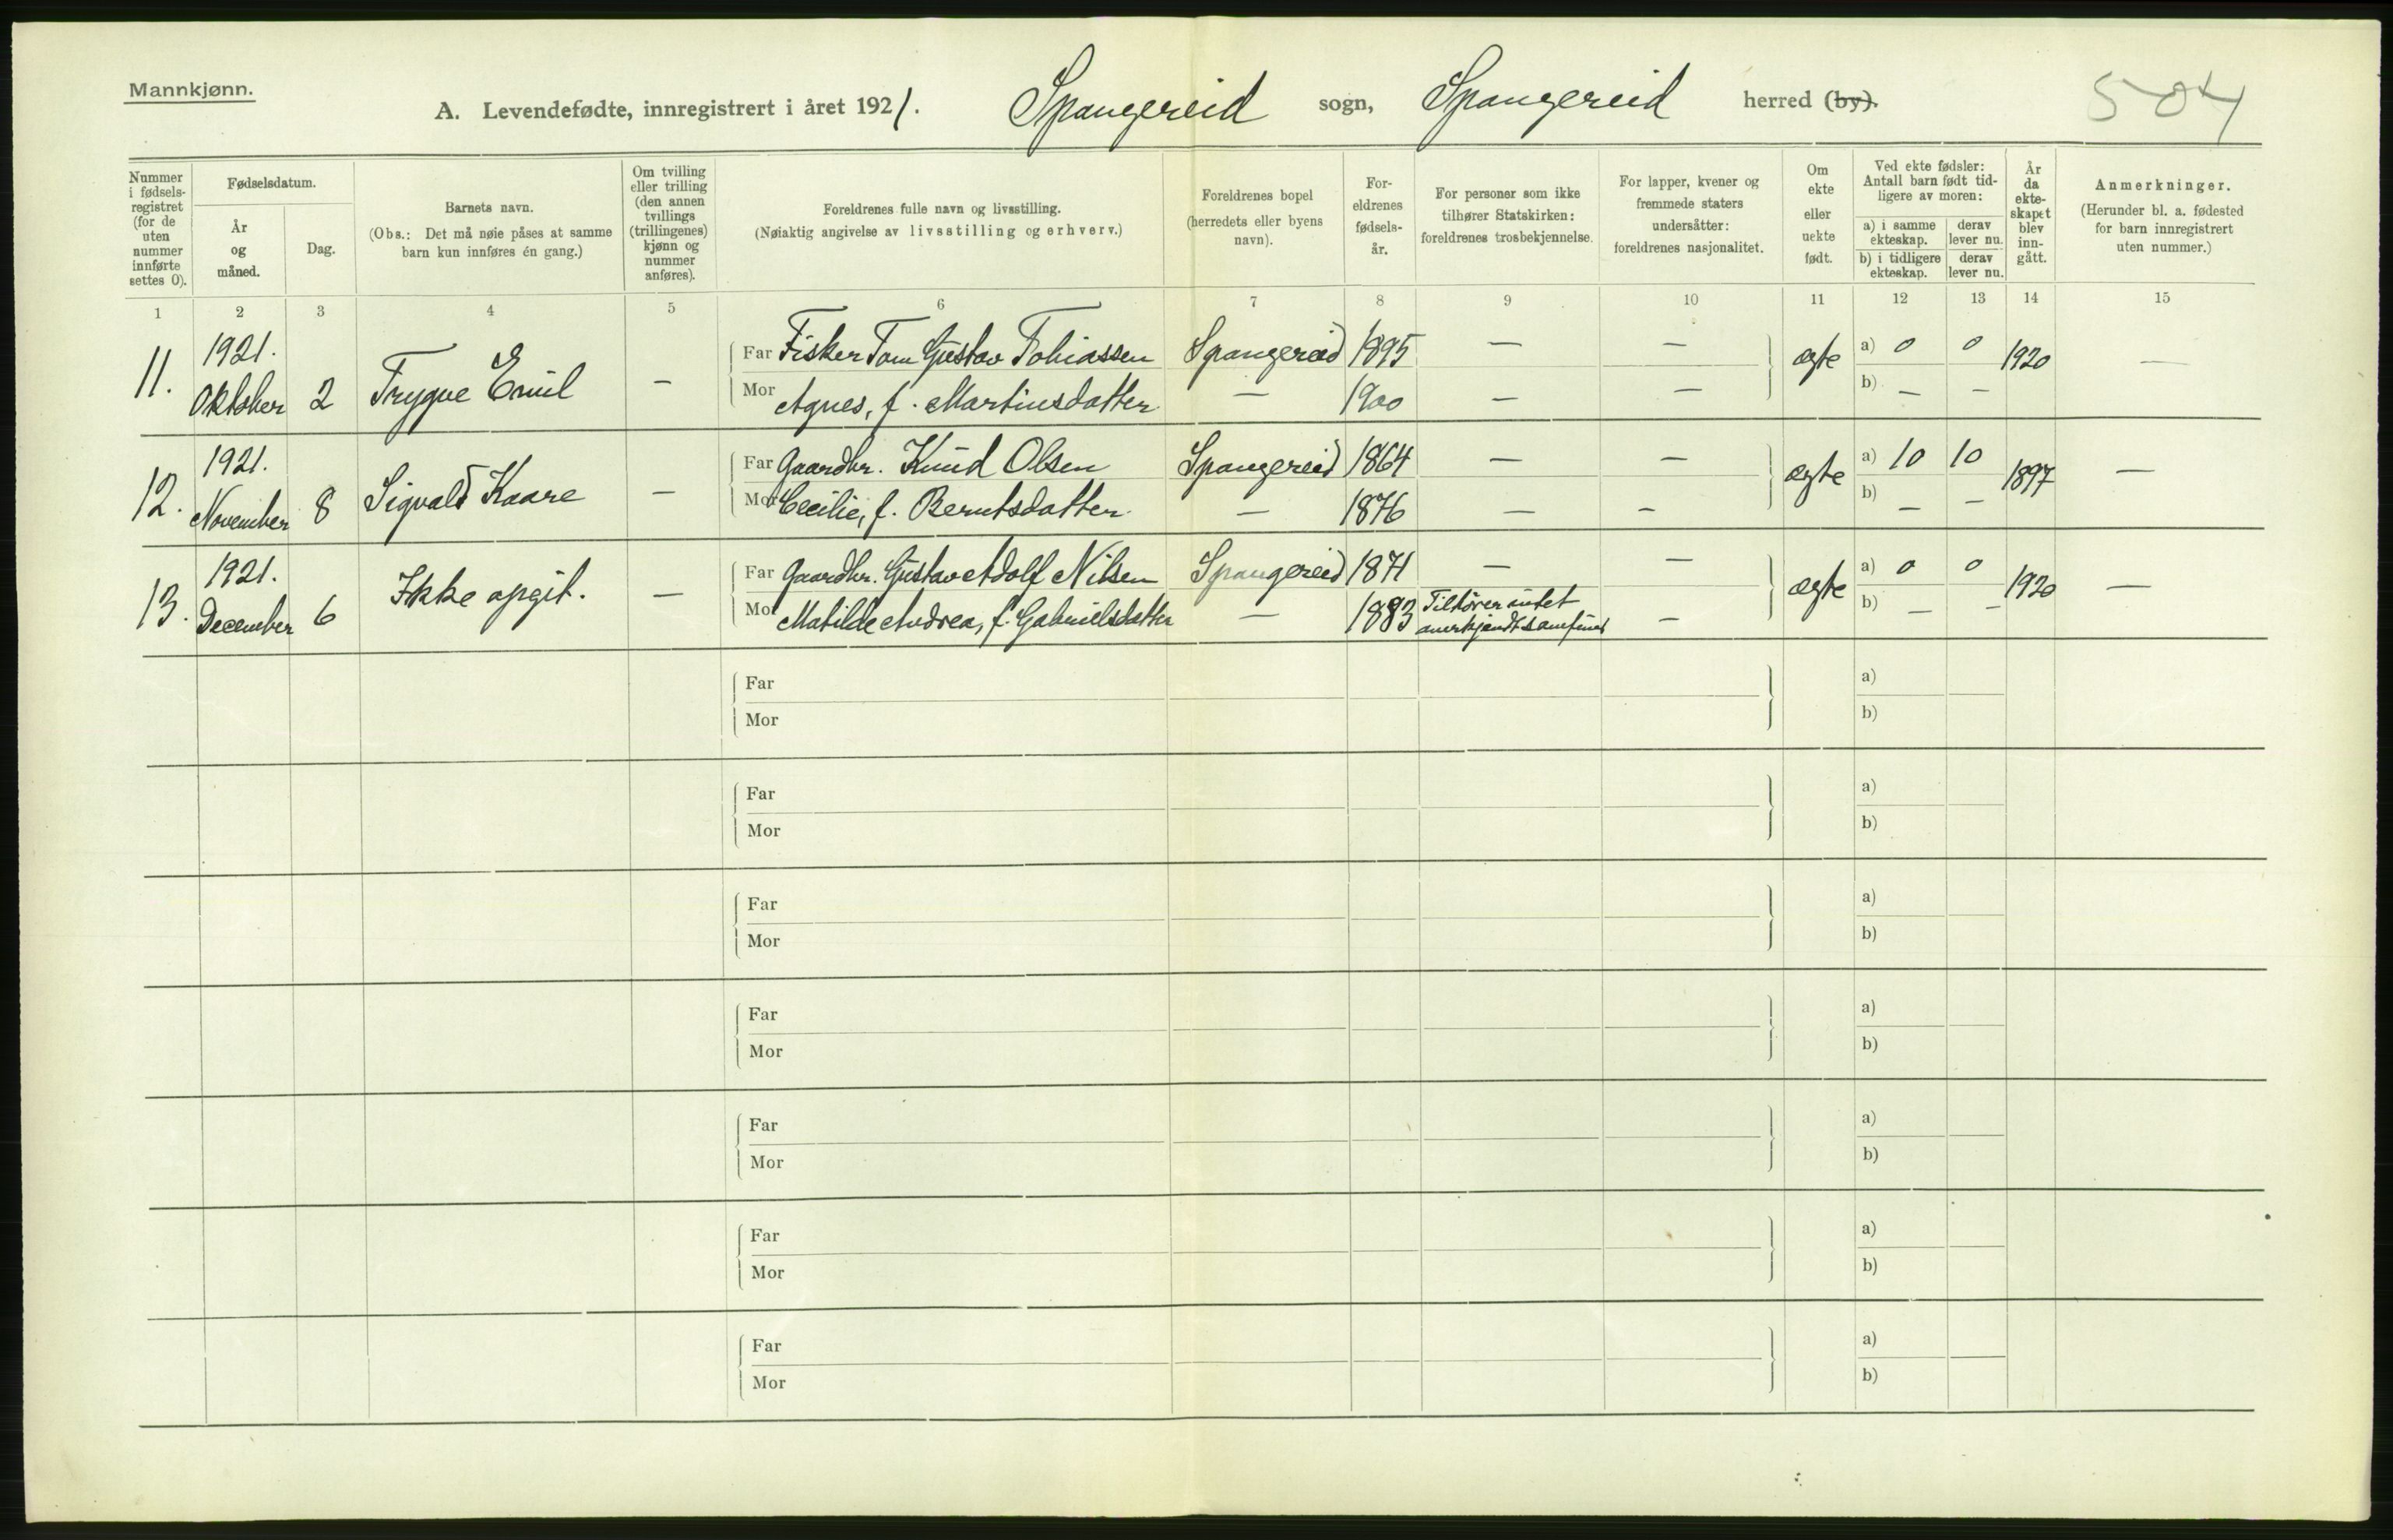 Mannkjønn.
A. Levendefødte, innregistrert i året 1921. Spangereid sogn, Spangereid herred (by). 504
Nummer i fødsels-registret (for de uten nummer innførte settes 0).
Fødselsdatum.
År og måned.
Dag.
Barnets navn.
(Obs.: Det må nøie påses at samme barn kun innføres én gang.)
Om tvilling eller trilling (den annen tvillings (trillingenes) kjønn og nummer anføres).
Foreldrenes fulle navn og livsstilling.
(Nøiaktig angivelse av livsstilling og erhverv.)
Foreldrenes bopel (herredets eller byens navn).
For-eldrenes fødsels-år.
For personer som ikke tilhører Statskirken: foreldrenes trosbekjennelse.
For lapper, kvener og fremmede staters undersåtter: foreldrenes nasjonalitet.
Om ekte eller uekte født.
Ved ekte fødsler: Antall barn født tid-ligere av moren:
a) i samme ekteskap. derav lever nu.
b) i tidligere ekteskap. derav lever nu.
År da ekte-skapet blev inn-gått.
Anmerkninger.
(Herunder bl. a. fødested for barn innregistrert uten nummer.)
1 2 3 4 5 6 7 8 9 10 11 12 13 14 15
11. 1921. Oktober 2 Trygve Emil — Far Fisker Tom Gustav Tobiassen Spangereid 1895 — — ægte a) 0 0 1920 —
Mor Agnes, f. Martinsdatter — 1900 — — b) — —
12. 1921. November 8 Sigvald Kaare — Far Gaardbr. Knud Olsen Spangereid 1864 — — ægte a) 10 10 1897 —
Mor Cecilie, f. Berntsdatter — 1876 — — b) — —
13. 1921. December 6 Ikke opgit. — Far Gaardbr. Gustav Adolf Nilsen Spangereid 1871 — — ægte a) 0 0 1920 —
Mor Matilde Andrea, f. Gabrielsdatter — 1883 Tilhører intet anerkjendt samfund — b) — —
Far a)
Mor b)
Far a)
Mor b)
Far a)
Mor b)
Far a)
Mor b)
Far a)
Mor b)
Far a)
Mor b)
Far a)
Mor b)